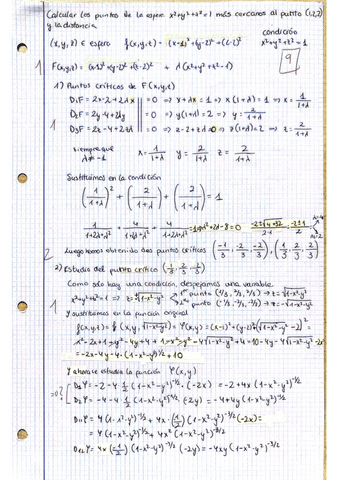 Calcular los puntos de la esfera x²+y²+z²=1 más cercanos al punto (1,2,2)
y la distancia
condición
(x,y,z) ∈ esfera f(x,y,z) = (x-1)²+(y-2)²+(z-2)² x²+y²+z²=1
9
1 F(x,y,z) = (x-1)²+(y-2)²+(z-2)² + λ(x²+y²+z²-1)
1) Puntos críticos de F(x,y,z)
D₁F = 2x-2+2λx = 0 => x+λx=1 => x(1+λ)=1 => x = 1/(1+λ)
D₂F = 2y-4+2λy = 0 => y(1+λ)=2 => y = 2/(1+λ)
D₃F = 2z-4+2λz = 0 => z-2+zλ=0 => z(1+λ)=2 => z = 2/(1+λ)
siempre que λ≠-1 x = 1/(1+λ) y = 2/(1+λ) z = 2/(1+λ)
Sustituimos en la condición
(1/(1+λ))² + (2/(1+λ))² + (2/(1+λ))² = 1
1/(1+2λ+λ²) + 4/(1+2λ+λ²) + 4/(1+2λ+λ²) = λ²+2λ-8=0
2 Luego hemos obtenido dos puntos críticos (-1/3, -2/3, -2/3), (1/3, 2/3, 2/3)
2) Estudio del punto crítico (1/3, 2/3, 2/3)
Como solo hay una condición, despejamos una variable
1 x²+y²+z²=1 => z = √1-x²-y²
Y sustituimos en la función original
f(x,y,z) = f(x,y,√1-x²-y²) = φ(x,y) = (x-1)²+(y-2)²+(√1-x²-y² -2)² =
= -2x-4y-4·(1-x²-y²)^1/2 + 10
Y ahora se estudia la función φ(x,y)
D₁φ = -2-4·1/2 (1-x²-y²)^-1/2 · (-2x) = -2+4x(1-x²-y²)^-1/2
D₂φ = -4-4·1/2 (1-x²-y²)^-1/2 (-2y) = -4+4y(1-x²-y²)^-1/2
D₁₁φ = 4(1-x²-y²)^-1/2 + 4x·(-1/2)(1-x²-y²)^-3/2 (-2x) =
= 4(1-x²-y²)^-1/2 + 4x²(1-x²-y²)^-3/2